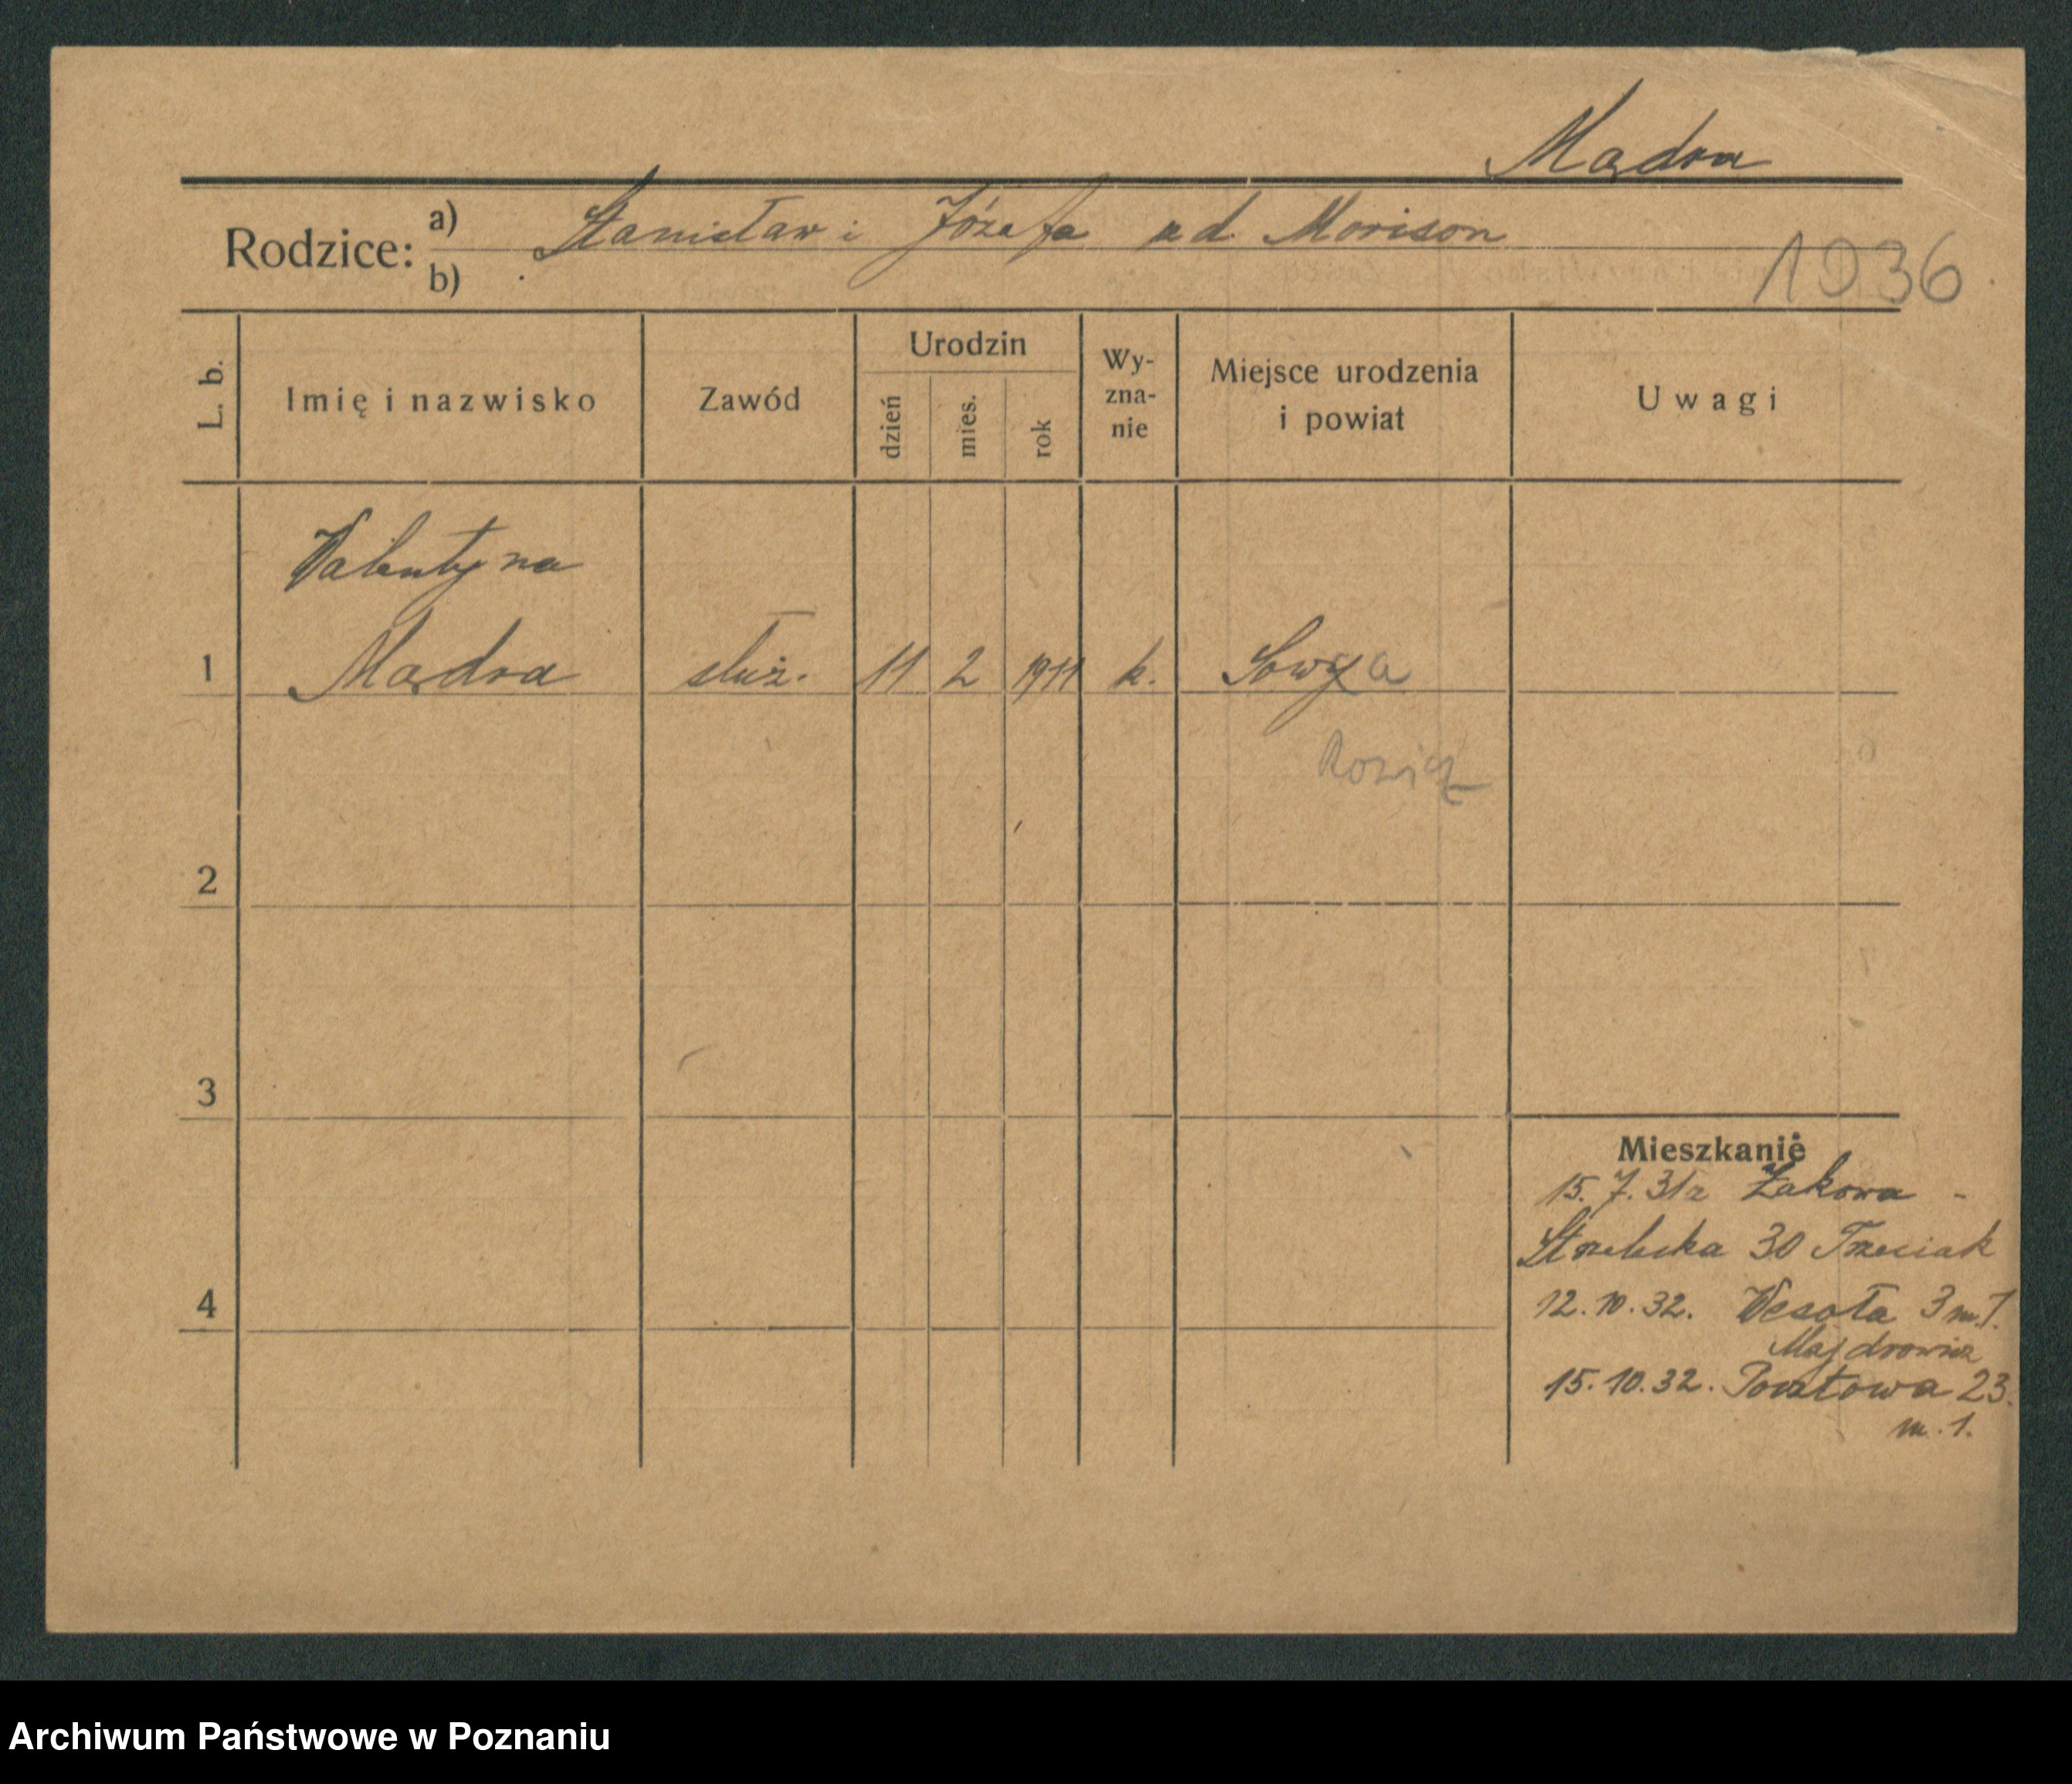 Mądra
Rodzice: a) Stanisław i Józefa ad. Morison
b)
1936
L. b.
Imię i nazwisko
Zawód
Urodzin
dzień
mies.
rok
Wy-
zna-
nie
Miejsce urodzenia
i powiat
Uwagi
Walentyna
1 Mądra służ. 11 2 1911 k. Sowy
2
3
4
Mieszkanie
15. 7. 31 z Żakowa -
Strzelecka 30 Trzeciak
12. 10. 32. Wesoła 3 m. 7.
Majdrowicz
15. 10. 32. Pocztowa 23.
m. 1.
Archiwum Państwowe w Poznaniu